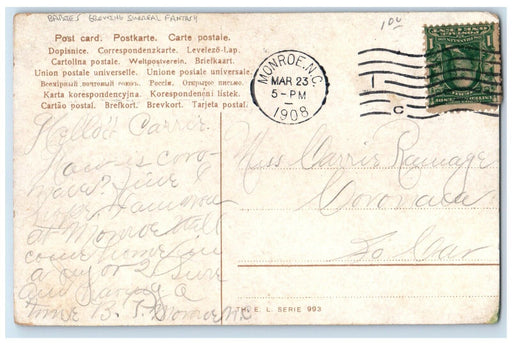 BABIES BREWING SURREAL FANTASY
1.00
Post card. Postkarte. Carte postale.
Dopisnice. Correspondenzkarte. Levelező-Lap.
Cartolina postale. Weltpostverein. Briefkaart.
Union postale universelle. Unione postale universale.
Всемірный почтовый союзъ. Россія. Открытое письмо.
Karta korespondencyjna. Korespondenční lístek.
Cartão postal. Brefkort. Brevkort. Tarjeta postal.
MONROE, N.C.
MAR 23
5-PM
1908
1
C
Hello Carrie
How is coro-
naca? Fine I
hope. I am now
at Monroe. Will
come home in
a day or 2. Sure
am having a
time B. T. Monroe NC
Miss Carrie Ramage
Coronaca
So Car
TH. E. L. SERIE 993